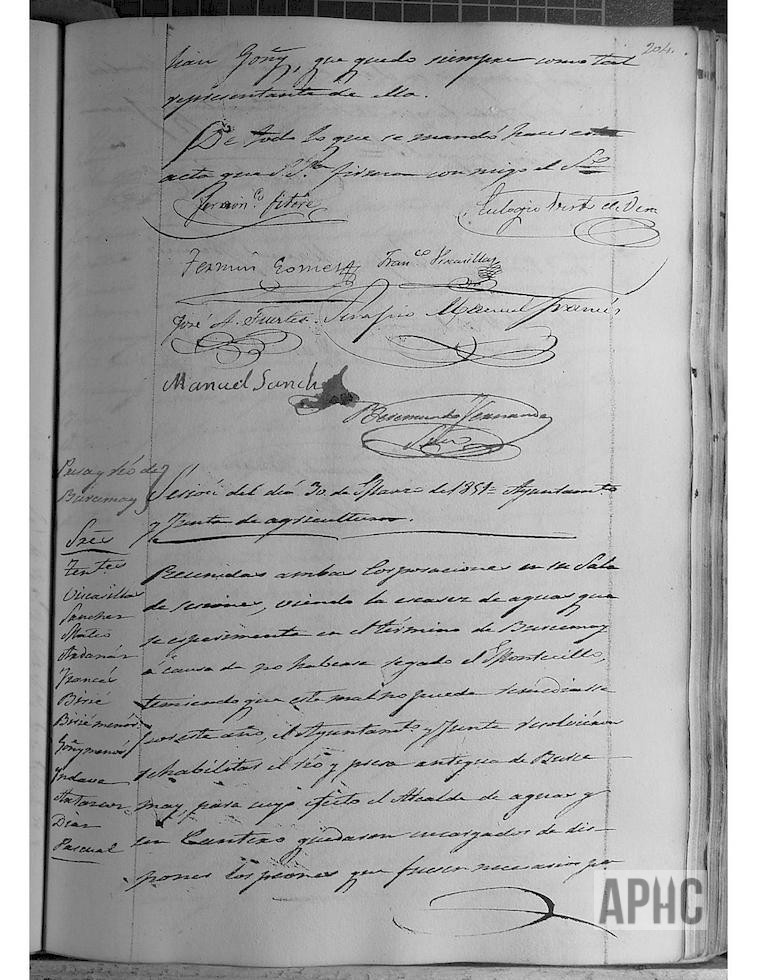 204.
Juan Goñy, que quedo siempre como tal
representante de ella.
De todo lo que se mandó hacer esta
acta que S.S.as firman conmigo el S.rio
Fermin Fitero
Eulogio
Fermin Gomes Fran.co Vicarillas
José A. Fuertes Serafio Manuel Francés
Manuel Sanch
Beremundo Fernando
Presa y rio de
Buxumay
Sesion del dia 30 de Marzo de 1851= Ayuntamto
y Junta de agricultura.
Sres
Fentes
Vicarillas
Sanchez
Mateo
Andanár
Francés
Birié
Birié menór
Goñy menor
Yndave
Dias
Pascual
Reunidas ambas Corporaciones en su Sala
de sesiones, viendo la escasez de aguas que
se esperimenta en el término de Buxumay
á causa de no haberse regado el Montecillo,
temiendo que este mal no pueda remediarse
por este año, el Ayuntamto y Junta resolvieron
rehabilitar el rio y presa antigua de Buxu
may, para cuyo efecto el Alcalde de aguas y
un Cantero quedaron encargados de dis-
poner los peones que fueren necesarios por
APHC